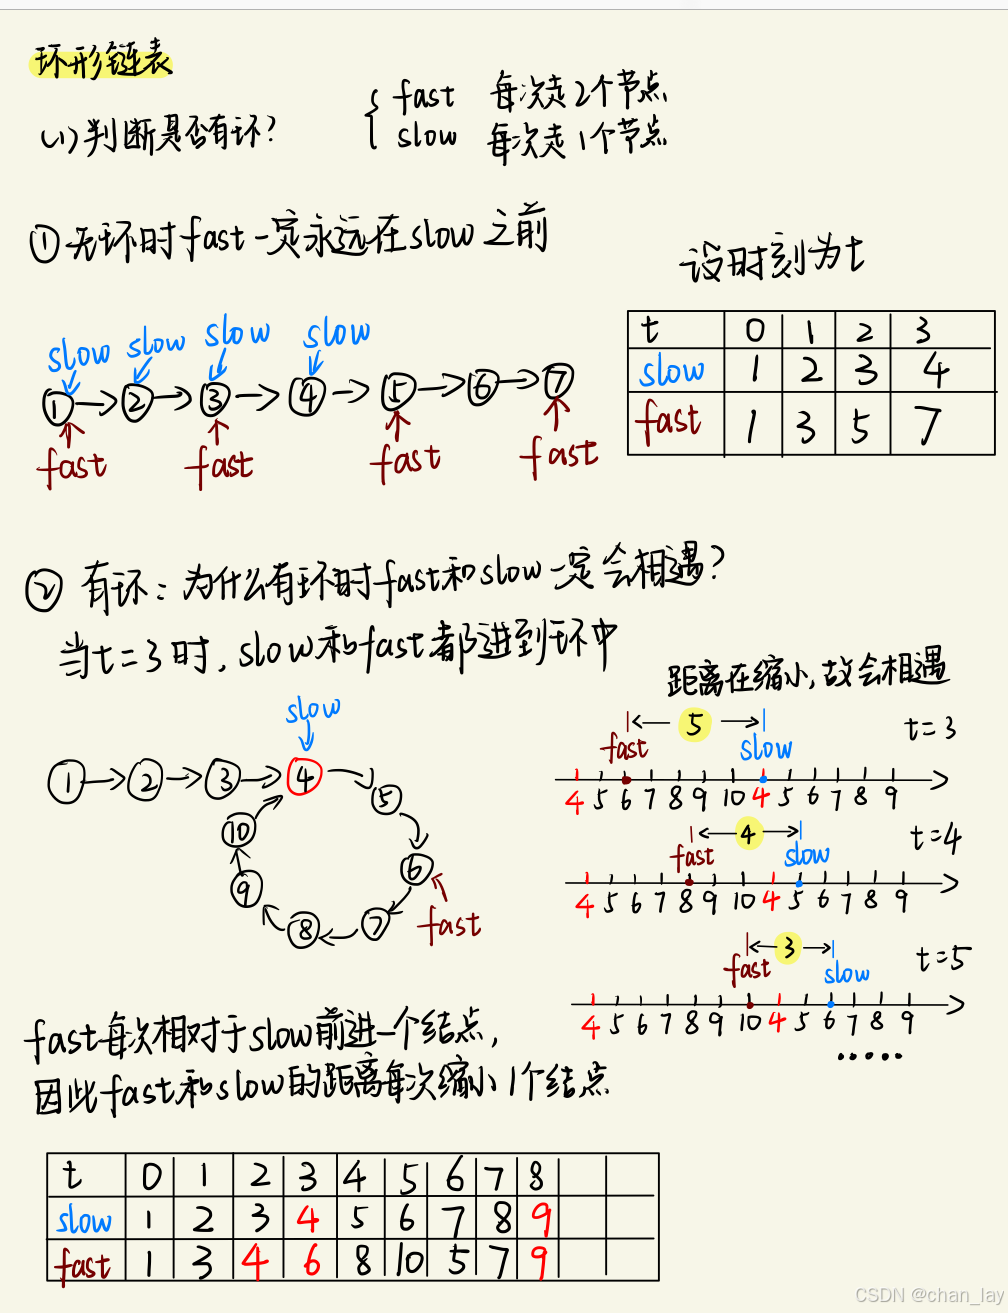 环形链表
(1)判断是否有环?
{ fast 每次走2个节点
slow 每次走1个节点
①无环时fast一定永远在slow之前
设时刻为t
slow slow slow slow
1 2 3 4 5 6 7
fast fast fast fast
t 0 1 2 3
slow 1 2 3 4
fast 1 3 5 7
② 有环:为什么有环时fast和slow一定会相遇?
当t=3时,slow和fast都进到环中
距离在缩小,故会相遇
slow
1 2 3 4
5
6
7
8
9
10
fast
5 t=3
fast slow
4 5 6 7 8 9 10 4 5 6 7 8 9
4 t=4
fast slow
4 5 6 7 8 9 10 4 5 6 7 8 9
3 t=5
fast slow
4 5 6 7 8 9 10 4 5 6 7 8 9
.....
fast每次相对于slow前进一个结点,
因此fast和slow的距离每次缩小1个结点
t 0 1 2 3 4 5 6 7 8
slow 1 2 3 4 5 6 7 8 9
fast 1 3 4 6 8 10 5 7 9
CSDN @chan_lay